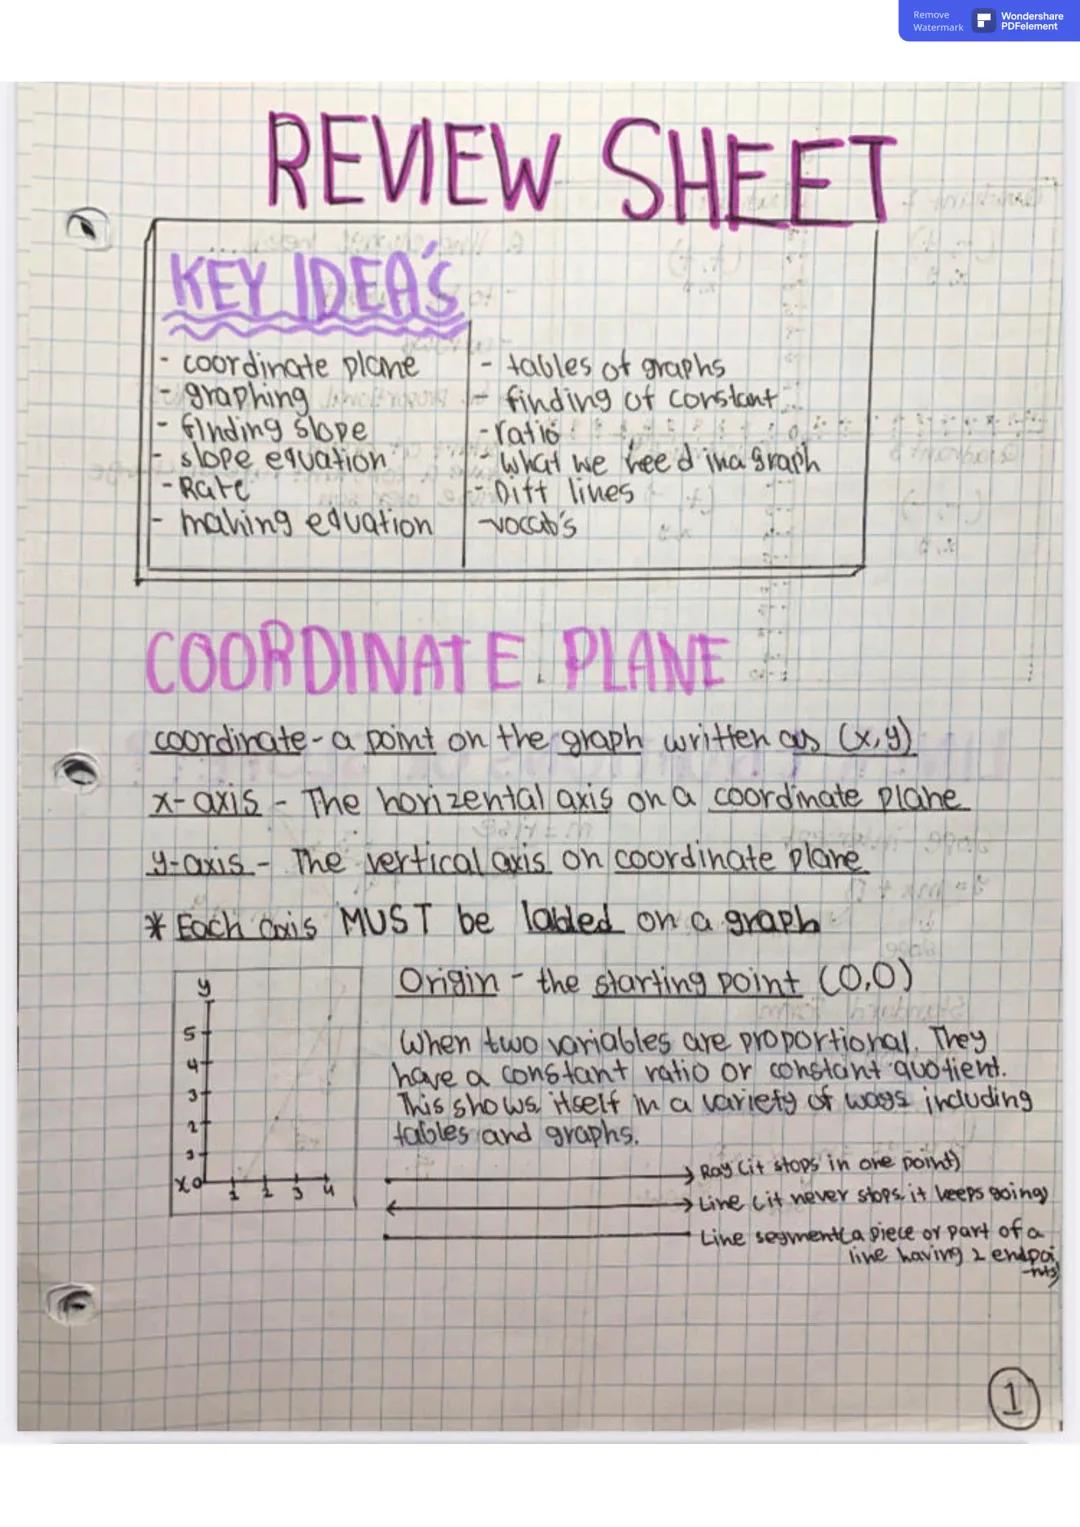 Remove
Watermark
Wondershare
PDFelement
REVIEW SHEET
KEY IDEA'S
- coordinate plane
- graphing
- finding slope
- slope equation
- Rate
- making equation
- tables of graphs
- finding of constant
- ratio
- what we need in a graph
- Diff lines
- vocab's
COORDINATE PLANE
coordinate - a point on the graph written as (x,y)
x-axis - The horizental axis on a coordinate plane
y-axis - The vertical axis on coordinate plane
* Each axis MUST be labled on a graph
Origin - the starting point (0,0)
When two variables are proportional. They
have a constant ratio or constant quotient.
This shows itself in a variety of ways including
tables and graphs.
y
5
4
3
2
1
x 0 1 2 3 4
Ray (it stops in one point)
Line (it never stops it keeps going)
Line segment (a piece or part of a
line having 2 endpoi
-nts)
1